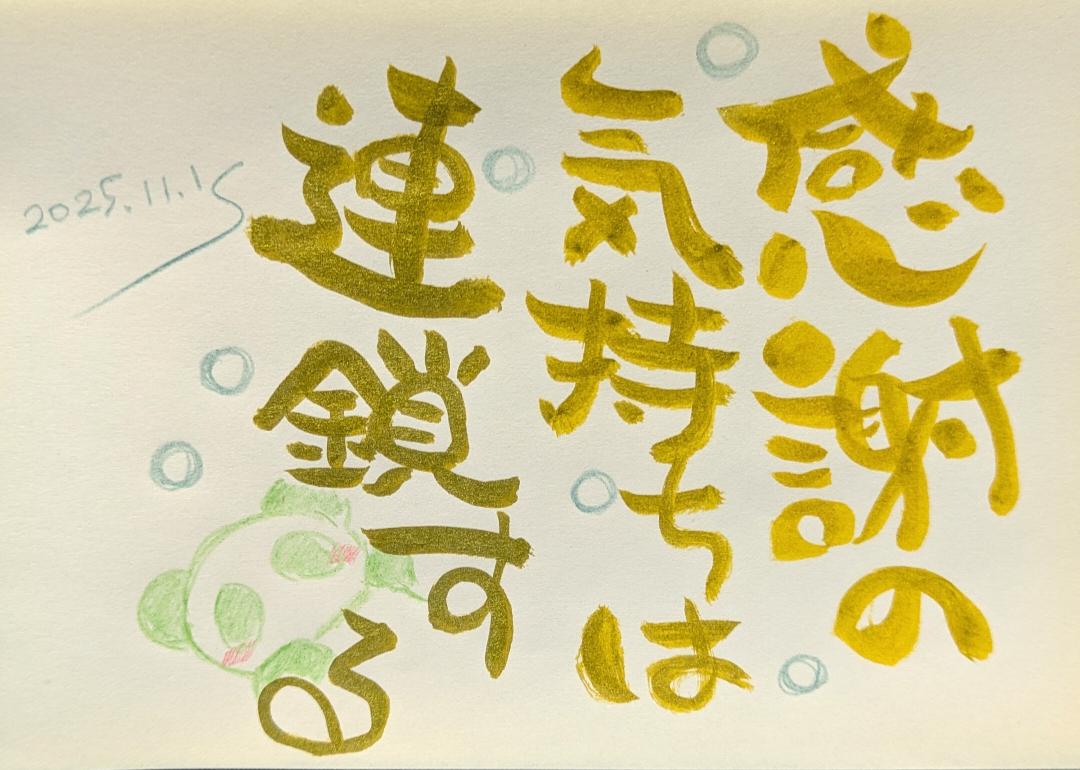 感謝の
気持ちは
連鎖する
2025.11.15